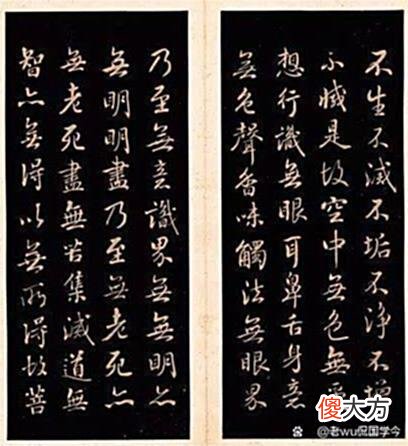 不生不滅不垢不淨不增
不減是故空中無色無受
想行識無眼耳鼻舌身意
無色聲香味觸法無眼界
乃至無意識界無無明亦
無明明盡乃至無老死亦
無老死盡無苦集滅道無
智亦無得以無所得故菩
傻大方
@老wu侃国学今